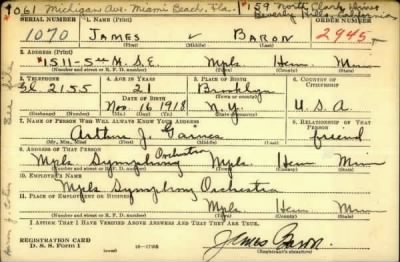 1061 Michigan Ave. Miami Beach, Fla. *159 North Clark Drive
Beverly Hills, California
SERIAL NUMBER 1. NAME (Print) ORDER NUMBER
1070 JAMES ✓ BARON 2945
(First) (Middle) (Last)
2. ADDRESS (Print)
*1511-5th St. S.E. Mpls Henn. Minn
(Number and street or R. F. D. number) (Town) (County) (State)
3. TELEPHONE 4. AGE IN YEARS 5. PLACE OF BIRTH 6. COUNTRY OF CITIZENSHIP
Gl. 2155 21 Brooklyn
DATE OF BIRTH (Town or county)
Nov. 16 1918 N.Y. U.S.A.
(Exchange) (Number) (Mo.) (Day) (Yr.) (State or country)
7. NAME OF PERSON WHO WILL ALWAYS KNOW YOUR ADDRESS 8. RELATIONSHIP OF THAT PERSON
Arthur J. Gaines friend
(Mr., Mrs., Miss) (First) (Middle) (Last)
9. ADDRESS OF THAT PERSON
Mpls Symphony Orchestra Mpls Henn Minn
(Number and street or R. F. D. number) (Town) (County) (State)
10. EMPLOYER'S NAME
Mpls Symphony Orchestra
11. PLACE OF EMPLOYMENT OR BUSINESS
Mpls. Henn Minn
(Number and street or R. F. D. number) (Town) (County) (State)
I AFFIRM THAT I HAVE VERIFIED ABOVE ANSWERS AND THAT THEY ARE TRUE.
REGISTRATION CARD
D. S. S. Form 1 16—17105 James Baron
(Registrant's signature)